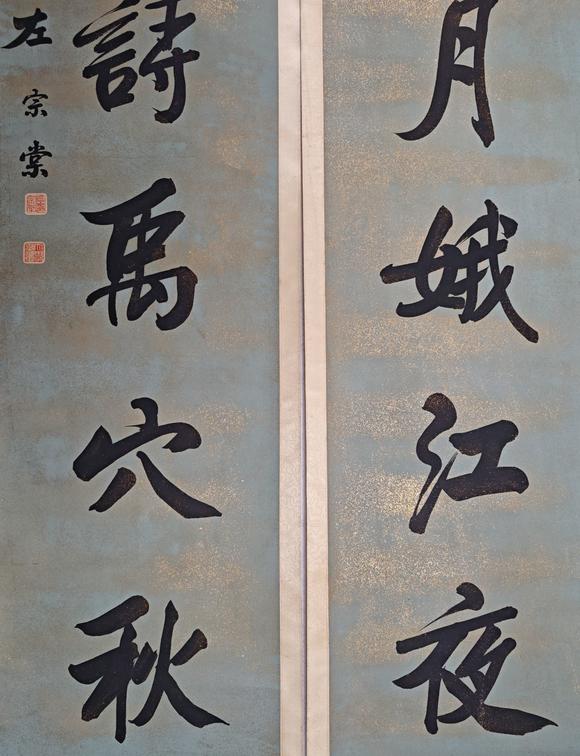 月娥江夜
詩禹穴秋
左宗棠